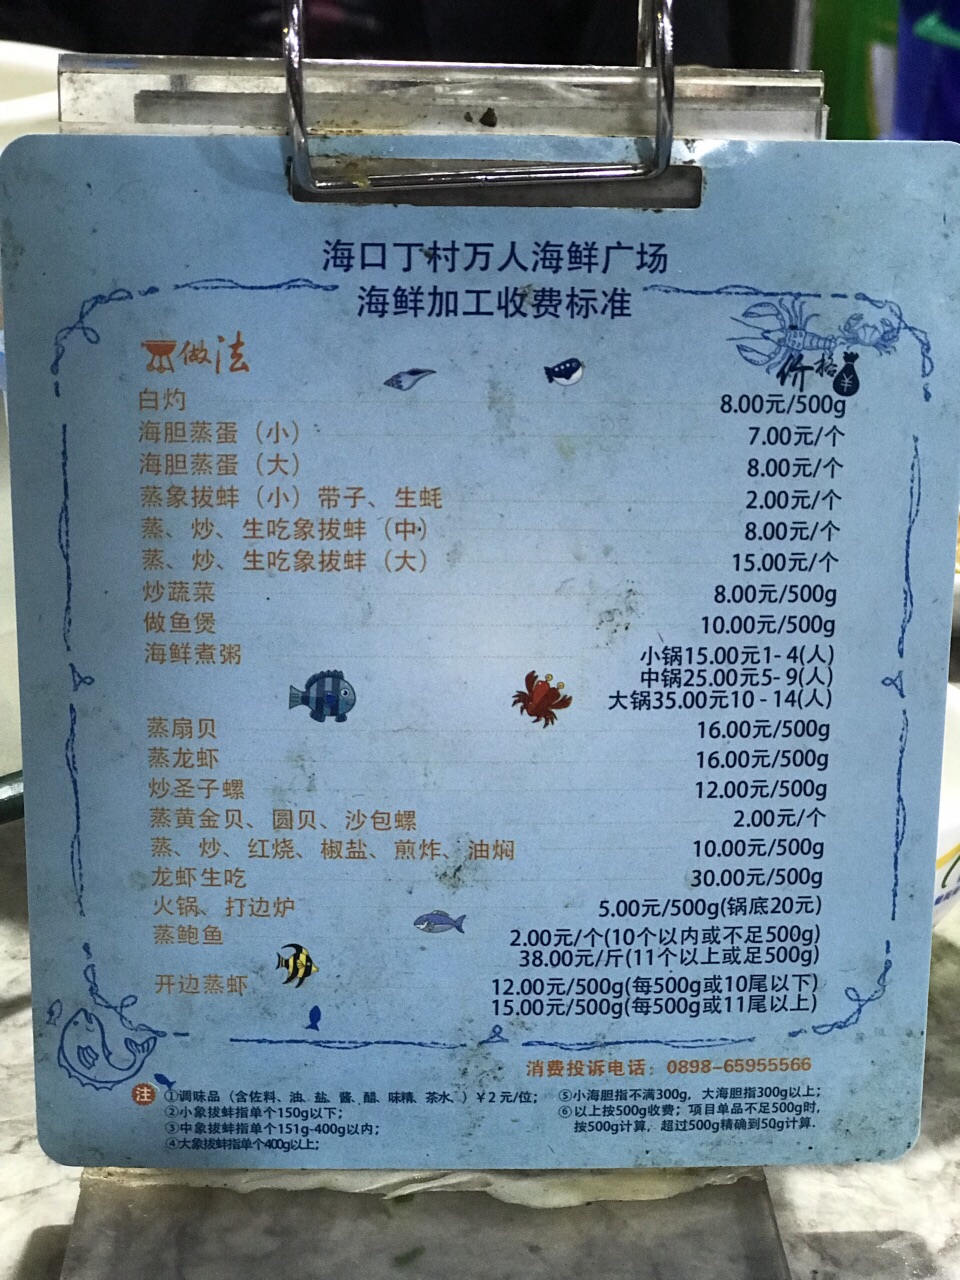 海口丁村万人海鲜广场
海鲜加工收费标准
做法 价格
白灼 8.00元/500g
海胆蒸蛋（小） 7.00元/个
海胆蒸蛋（大） 8.00元/个
蒸象拔蚌（小）带子、生蚝 2.00元/个
蒸、炒、生吃象拔蚌（中） 8.00元/个
蒸、炒、生吃象拔蚌（大） 15.00元/个
炒蔬菜 8.00元/500g
做鱼煲 10.00元/500g
海鲜煮粥 小锅15.00元1-4(人)
中锅25.00元5-9(人)
大锅35.00元10-14(人)
蒸扇贝 16.00元/500g
蒸龙虾 16.00元/500g
炒圣子螺 12.00元/500g
蒸黄金贝、圆贝、沙包螺 2.00元/个
蒸、炒、红烧、椒盐、煎炸、油焖 10.00元/500g
龙虾生吃 30.00元/500g
火锅、打边炉 5.00元/500g(锅底20元)
蒸鲍鱼 2.00元/个(10个以内或不足500g)
38.00元/斤(11个以上或足500g)
开边蒸虾 12.00元/500g(每500g或10尾以下)
15.00元/500g(每500g或11尾以上)
消费投诉电话：0898-65955566
注 ①调味品（含佐料、油、盐、酱、醋、味精、茶水、）￥2元/位；
②小象拔蚌指单个150g以下；
③中象拔蚌指单个151g-400g以内；
④大象拔蚌指单个400g以上；
⑤小海胆指不满300g，大海胆指300g以上；
⑥以上按500g收费；项目单品不足500g时，
按500g计算，超过500g精确到50g计算.